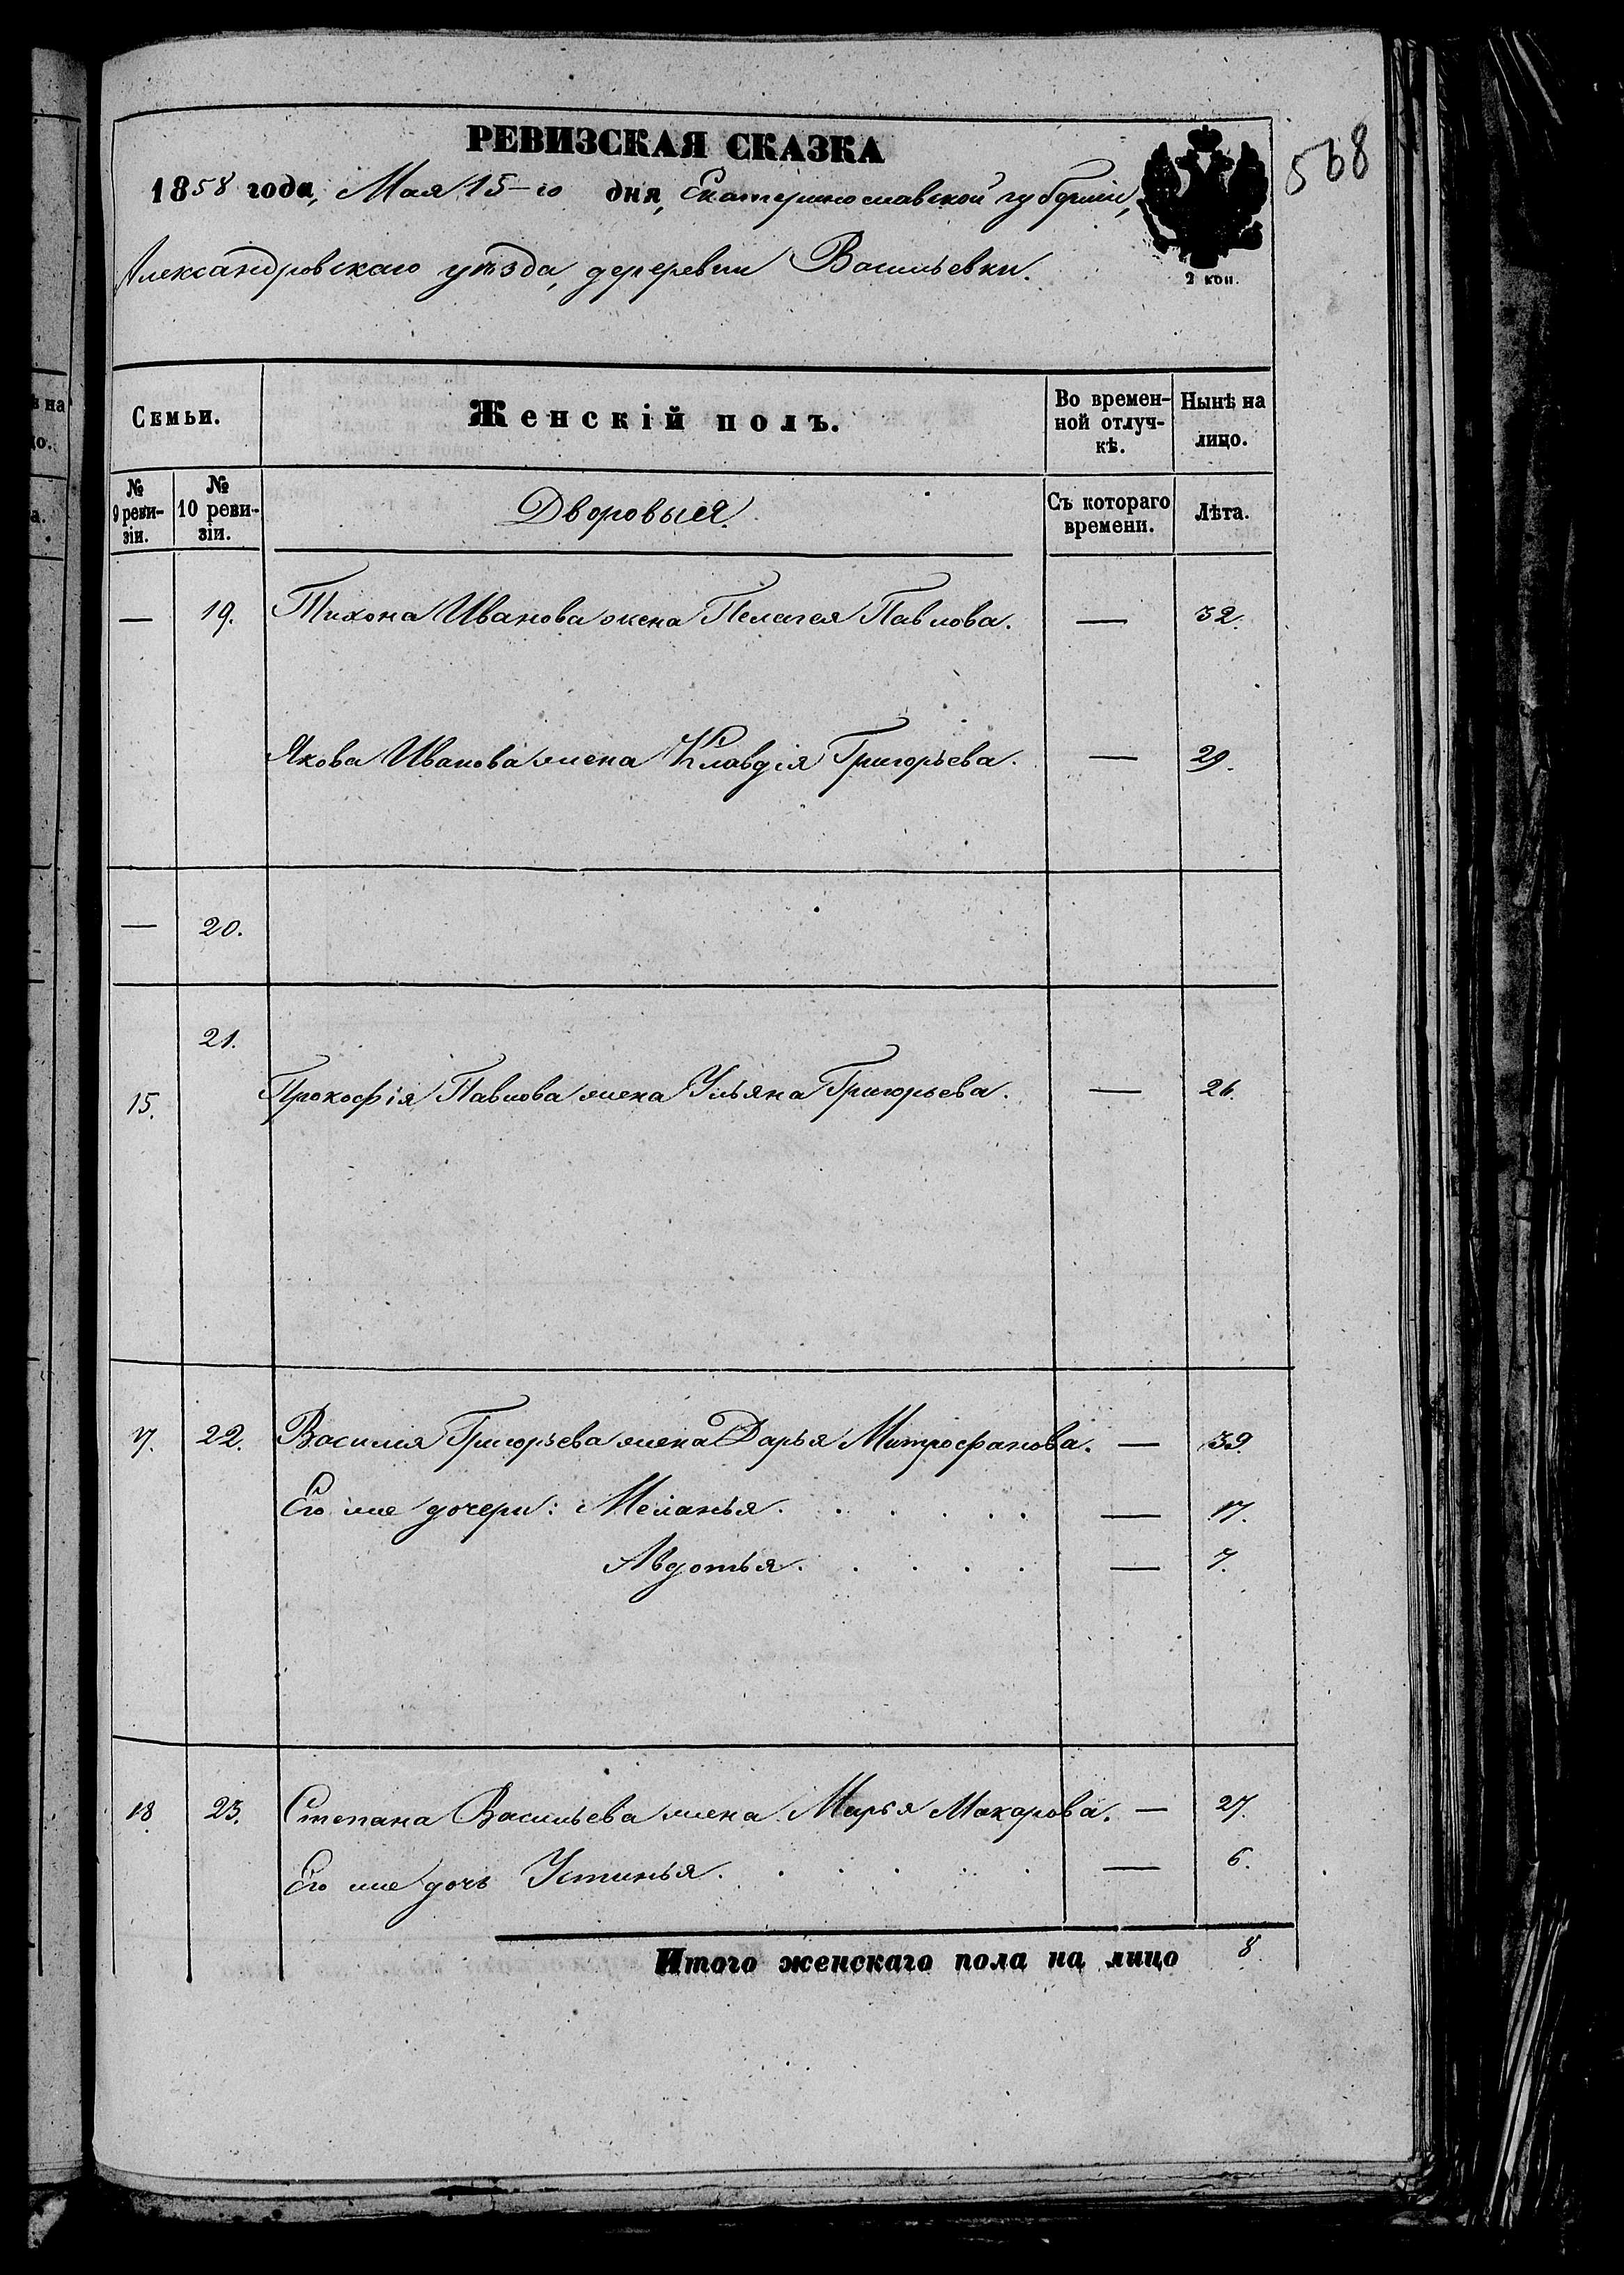 568
РЕВИЗСКАЯ СКАЗКА
1858 года, Мая 15-го дня, Екатеринославской губерніи,
Александровскаго уѣзда, дереревни Васильевки.
2 коп.
Семьи. Женскій полъ. Во времен-ной отлуч-кѣ. Нынѣ на лицо.
№ 9 реви-зіи. № 10 реви-зіи. Дворовыя. Съ котораго времени. Лѣта.
— 19. Тихона Иванова жена Пелагея Павлова. — 32.
Якова Иванова жена Клавдія Григорьева. — 29.
— 20.
21.
15. Прокофія Павлова жена Ульяна Григорьева. — 26.
17. 22. Василия Григорьева жена Дарья Митрофанова. — 39.
Его же дочери: Меланья. — 17.
Авдотья. — 7.
18 23. Степана Васильева жена Марья Макарова. — 27.
Его же дочь Устинья. — 6.
Итого женскаго пола на лицо 8.